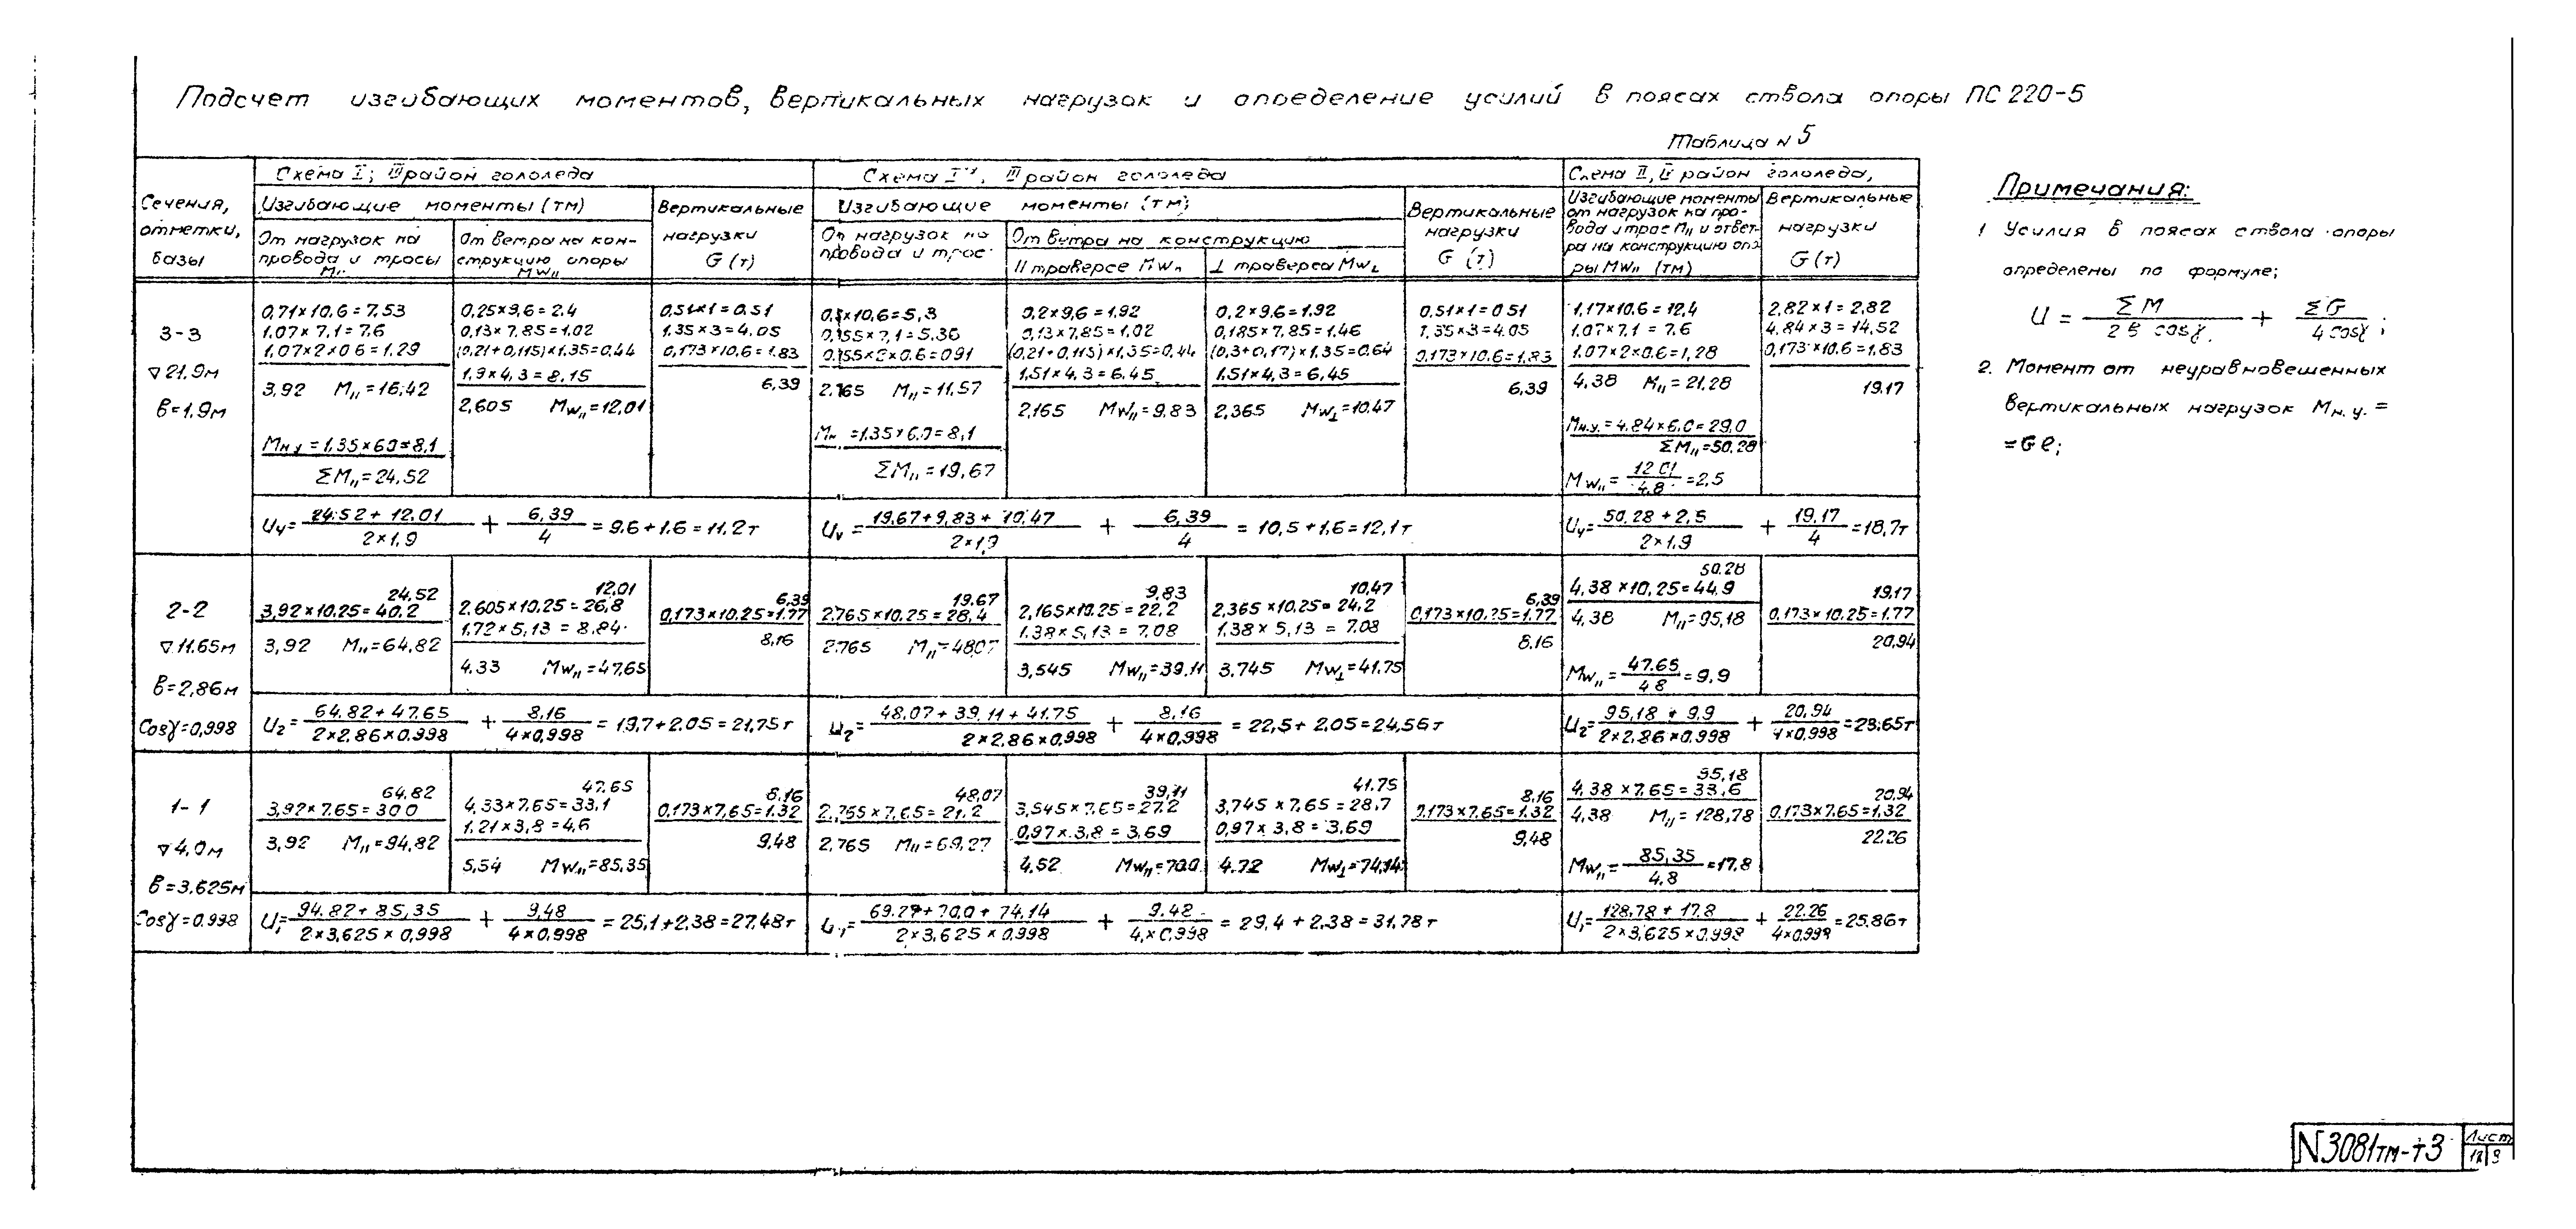 Подсчет изгибающих моментов, вертикальных нагрузок и определение усилий в поясах ствола опоры ПС 220-5
Таблица N 5
Сечения, отметки, базы
Схема I; III район гололеда
Изгибающие моменты (тм)
От нагрузок на провода и тросы
От ветра на конструкцию опоры Mw₁₁
Вертикальные нагрузки G (т)
Схема Iа, III район гололеда
Изгибающие моменты (тм)
От нагрузок на провода и трос
От ветра на конструкцию
II траверсе Mw₁₁
⊥ траверса Mw⊥
Вертикальные нагрузки G (т)
район гололеда,
Изгибающие моменты
от нагрузок на про-
вода и трос и от вет-
ра на конструкцию опо
ры Mw₁₁ (тм)
Вертикальные нагрузки G (т)
3-3
▽21.9м
в=1,9м
0,71×10,6=7.53
1,07×7,1=7,6
1,07×2×0,6=1,29
3,92 M₁₁=16,42
Mн.у=1,35×6,0=8,1
ΣM₁₁=24,52
0,25×9,6=2.4
0,13×7,85=1,02
(0,21+0,115)×1,35=0,44
1,9×4,3=8,15
2,605 Mw₁₁=12,01
0,51×1=0,51
1,35×3=4,05
0,173×10,6=1,83
6,39
0,5×10,6=5,3
0,755×7,1=5,36
0,755×2×0,6=0,91
2,765 M₁₁=11,57
=1,35×6,0=8,1
ΣM₁₁=19,67
0,2×9,6=1,92
0,13×7,85=1,02
(0,21+0,115)×1,35=0,44
1,51×4,3=6,45
2,165 Mw₁₁=9,83
0,2×9,6=1,92
0,185×7,85=1,46
(0,3+0,17)×1,35=0,64
1,51×4,3=6,45
2,365 Mw⊥=10,47
0,51×1=0,51
1,35×3=4,05
0,173×10,6=1,83
6,39
1,17×10,6=12,4
1,07×7,1=7,6
1,07×2×0,6=1,28
4,38 M₁₁=21,28
Mн.у.=4,84×6,0=29,0
ΣM₁₁=50,28
Mw₁₁=12,01/4,8=2,5
2,82×1=2,82
4,84×3=14,52
0,173×10,6=1,83
19,17
U₄=24,52+12,01/2×1,9+6,39/4=9,6+1,6=11,2т
U₄=19,67+9,83+10,47/2×1,9+6,39/4=10,5+1,6=12,1т
U₄=50,28+2,5/2×1,9+19,17/4=18,7т
2-2
▽11.65м
в=2,86м
Cosγ=0,998
24,52
3,92×10,25=40,2
3,92 M₁₁=64,82
12,01
2,605×10,25=26,8
1,72×5,13=8,84
4,33 Mw₁₁=47,65
6,39
0,173×10,25=1,77
8,16
19,67
2,765×10,25=28,4
2,765 M₁₁=48,07
9,83
2,165×10,25=22,2
1,38×5,13=7,08
3,545 Mw₁₁=39,11
10,47
2,365×10,25=24,2
1,38×5,13=7,08
3,745 Mw⊥=41,75
6,39
0,173×10,25=1,77
8,16
50,28
4,38×10,25=44,9
4,38 M₁₁=95,18
Mw₁₁=47,65/4,8=9,9
19,17
0,173×10,25=1,77
20,94
U₂=64,82+47,65/2×2,86×0,998+8,16/4×0,998=19,7+2,05=21,75т
U₂=48,07+39,11+41,75/2×2,86×0,998+8,16/4×0,998=22,5+2,05=24,56т
U₂=95,18+9,9/2×2,86×0,998+20,94/4×0,998=23,65т
1-1
▽4,0м
в=3,625м
Cosγ=0,998
64,82
3,92×7,65=30,0
3,92 M₁₁=94,82
47,65
4,33×7,65=33,1
1,21×3,8=4,6
5,54 Mw₁₁=85,35
8,16
0,173×7,65=1,32
9,48
48,07
2,765×7,65=21,2
2,765 M₁₁=69,27
39,11
3,545×7,65=27,2
0,97×3,8=3,69
4,52 Mw₁₁=70,0
41,75
3,745×7,65=28,7
0,97×3,8=3,69
4,72 Mw⊥=74,14
8,16
0,173×7,65=1,32
9,48
95,18
4,38×7,65=33,6
4,38 M₁₁=128,78
Mw₁₁=85,35/4,8=17,8
20,94
0,173×7,65=1,32
22,26
U₁=94,82+85,35/2×3,625×0,998+9,48/4×0,998=25,1+2,38=27,48т
69,27+70,0+74,14/2×3,625×0,998+9,48/4×0,998=29,4+2,38=31,78т
U₁=128,78+17,8/2×3,625×0,998+22,26/4×0,998=25,86т
Примечания:
1 Усилия в поясах ствола опоры
определены по формуле;
U = ΣM/2в cosγ + ΣG/4cosγ;
2. Момент от неуравновешенных
вертикальных нагрузок Mн.у. =
=Ge;
N3081тм-т3
Лист